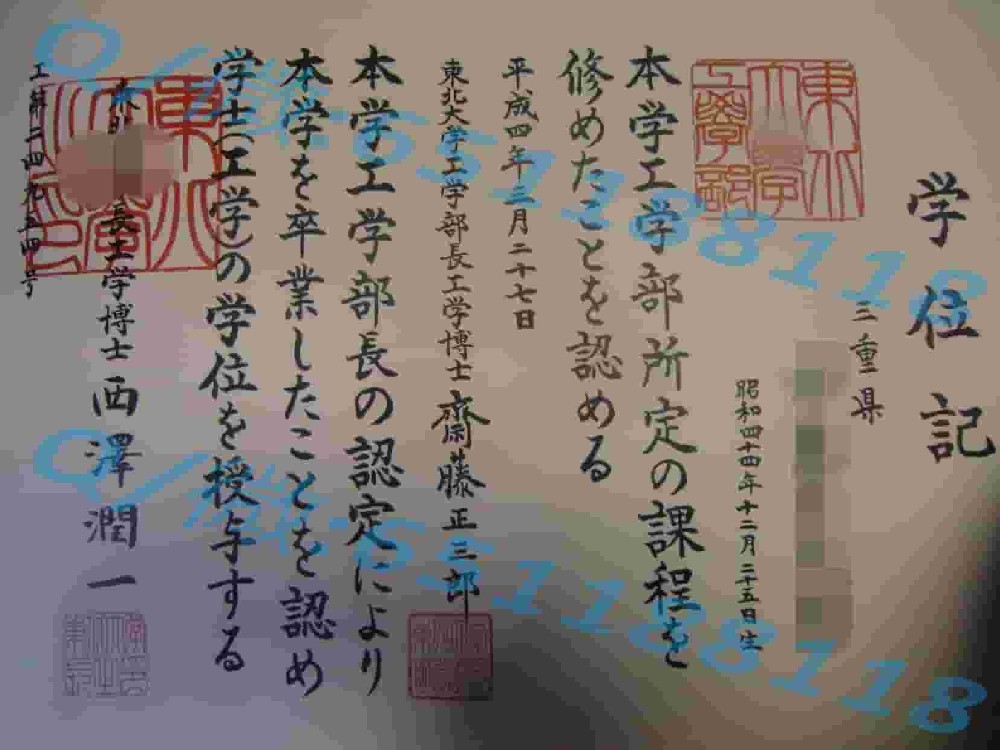 学位記
三重県
昭和四十四年十二月二十五日生
本学工学部所定の課程を
修めたことを認める
平成四年三月二十七日
東北大学工学部長工学博士 齋藤正三郎
本学工学部長の認定により
本学を卒業したことを認め
学士(工学)の学位を授与する
長工学博士 西澤潤一